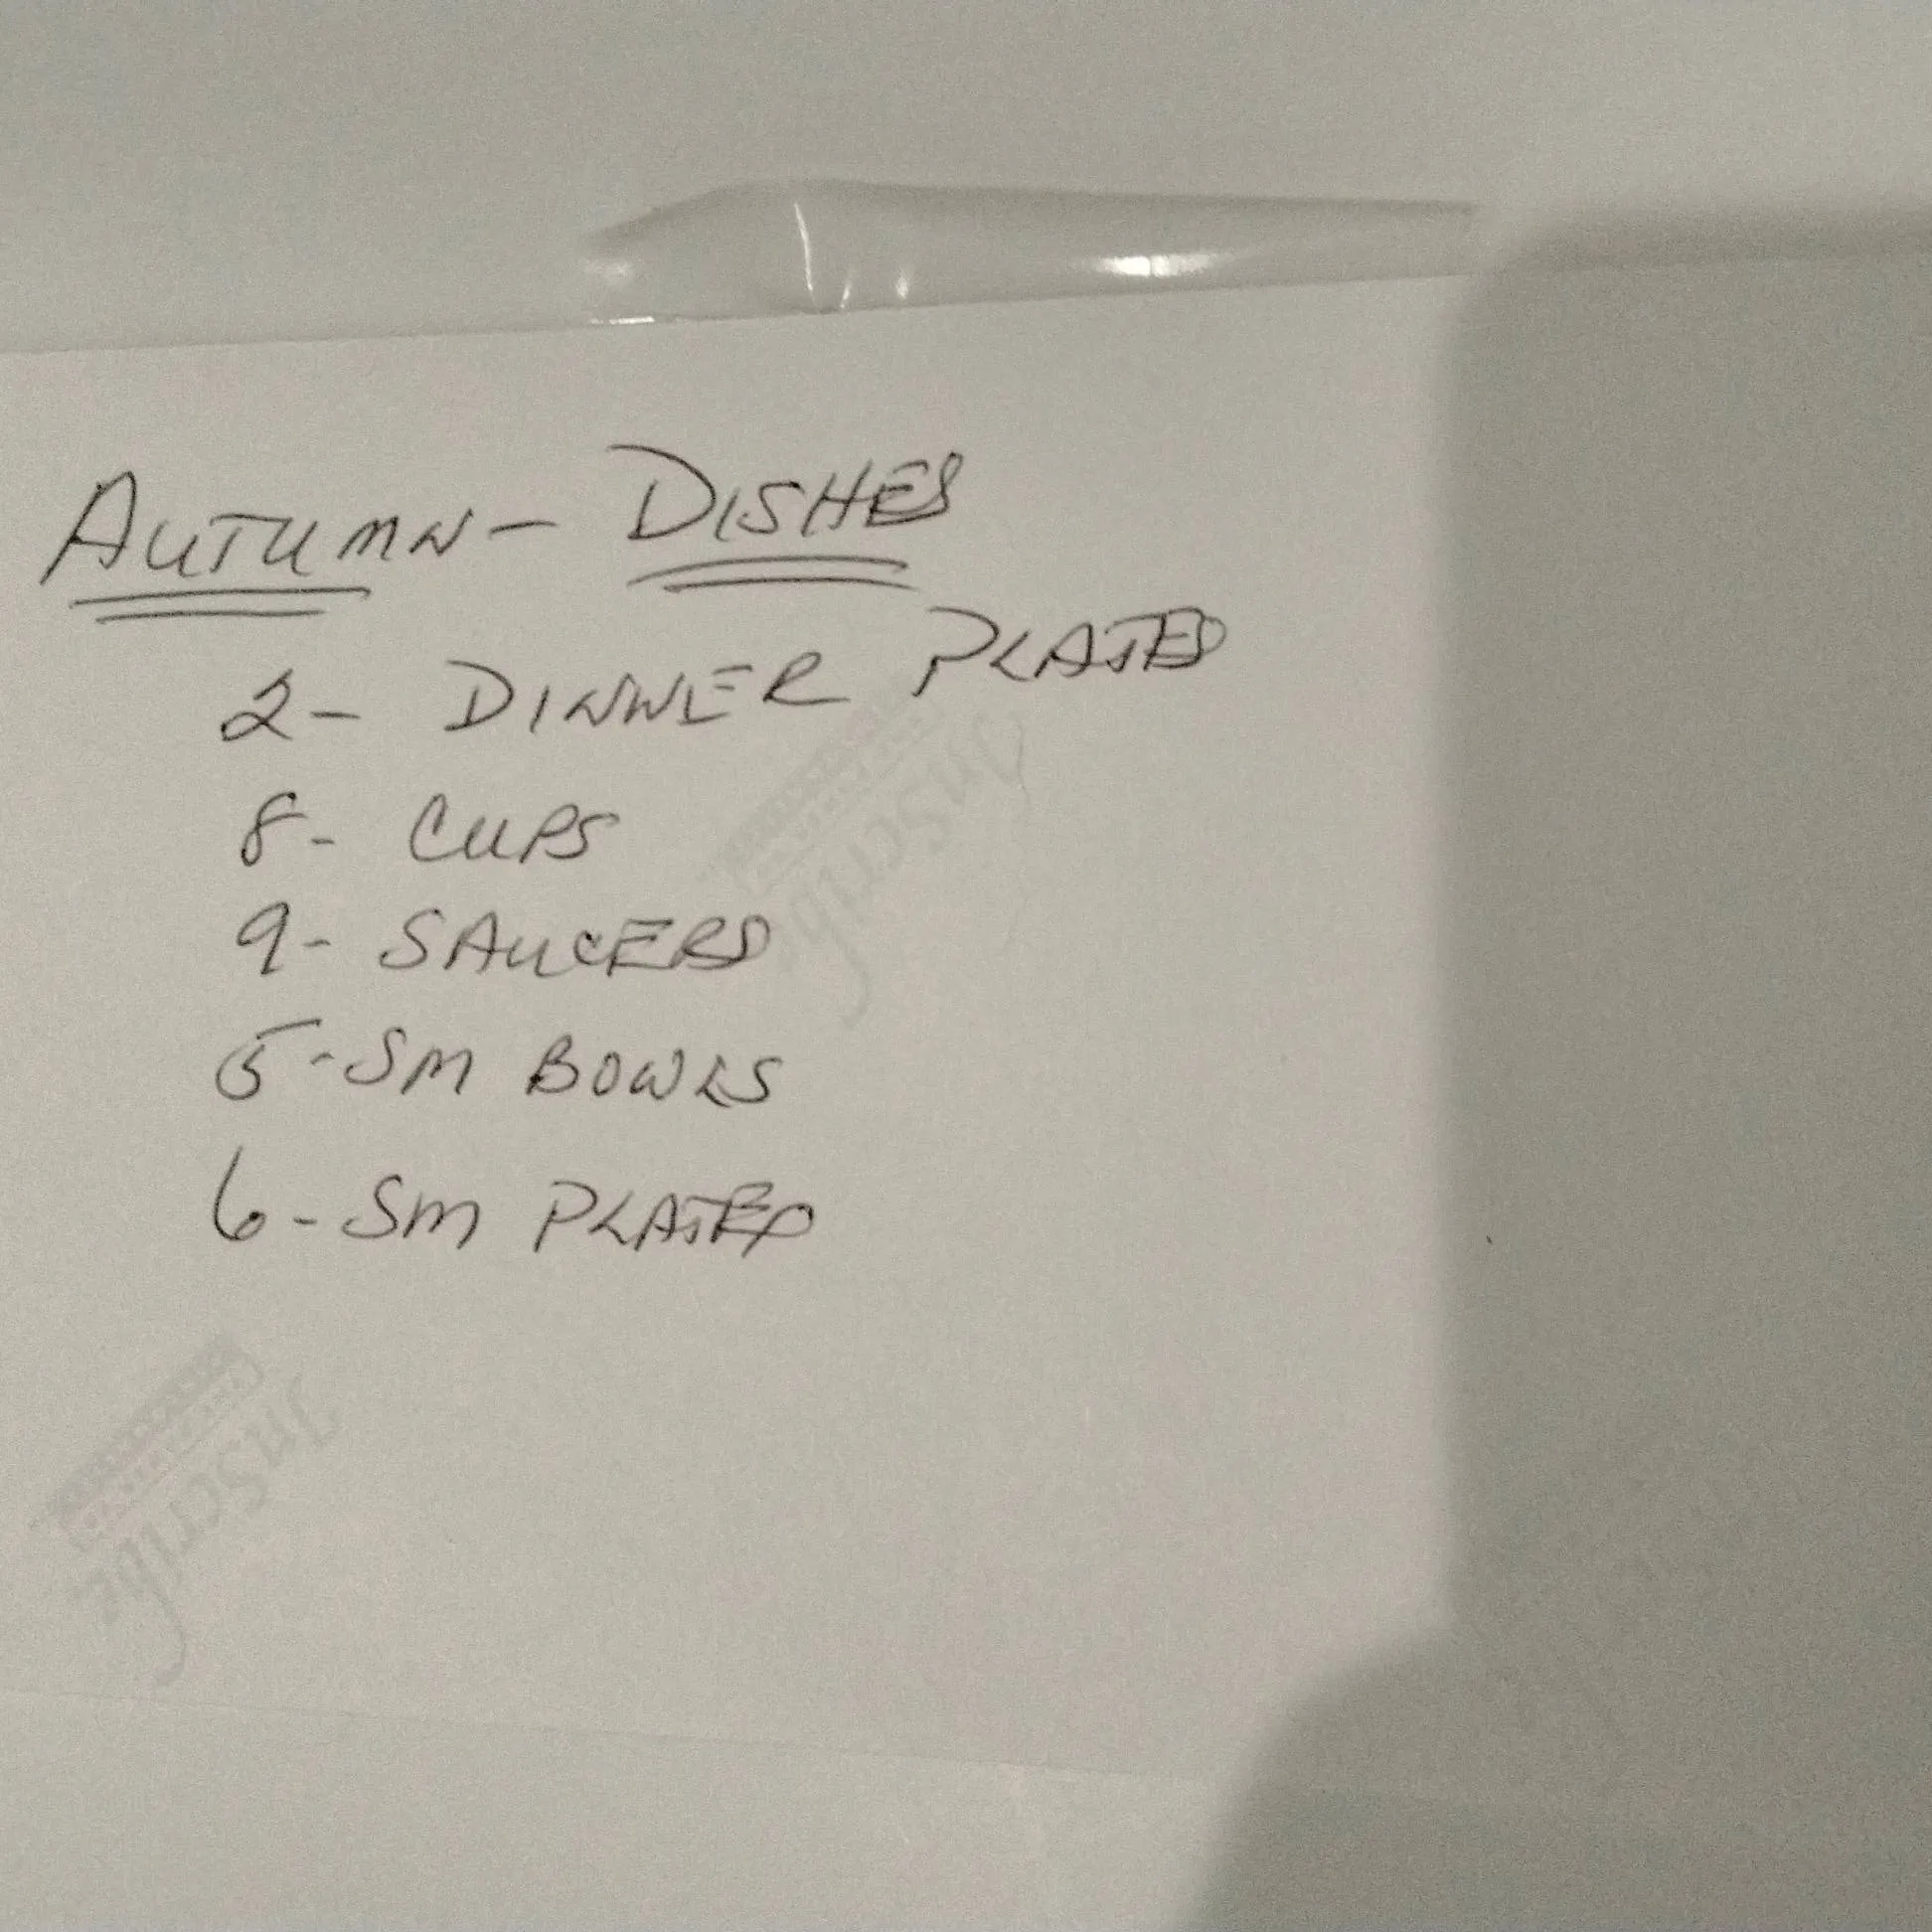 AUTUMN - DISHES
2 - DINNER PLATES
8 - CUPS
9 - SAUCERS
5 - SM BOWLS
6 - SM PLATES